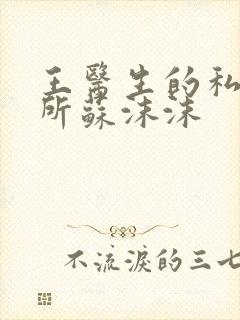 王醫生的私
所蘇沫沫
不流淚的三七